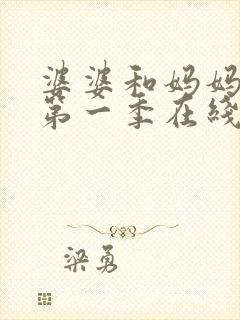 婆婆和妈妈
第一季在线
梁勇